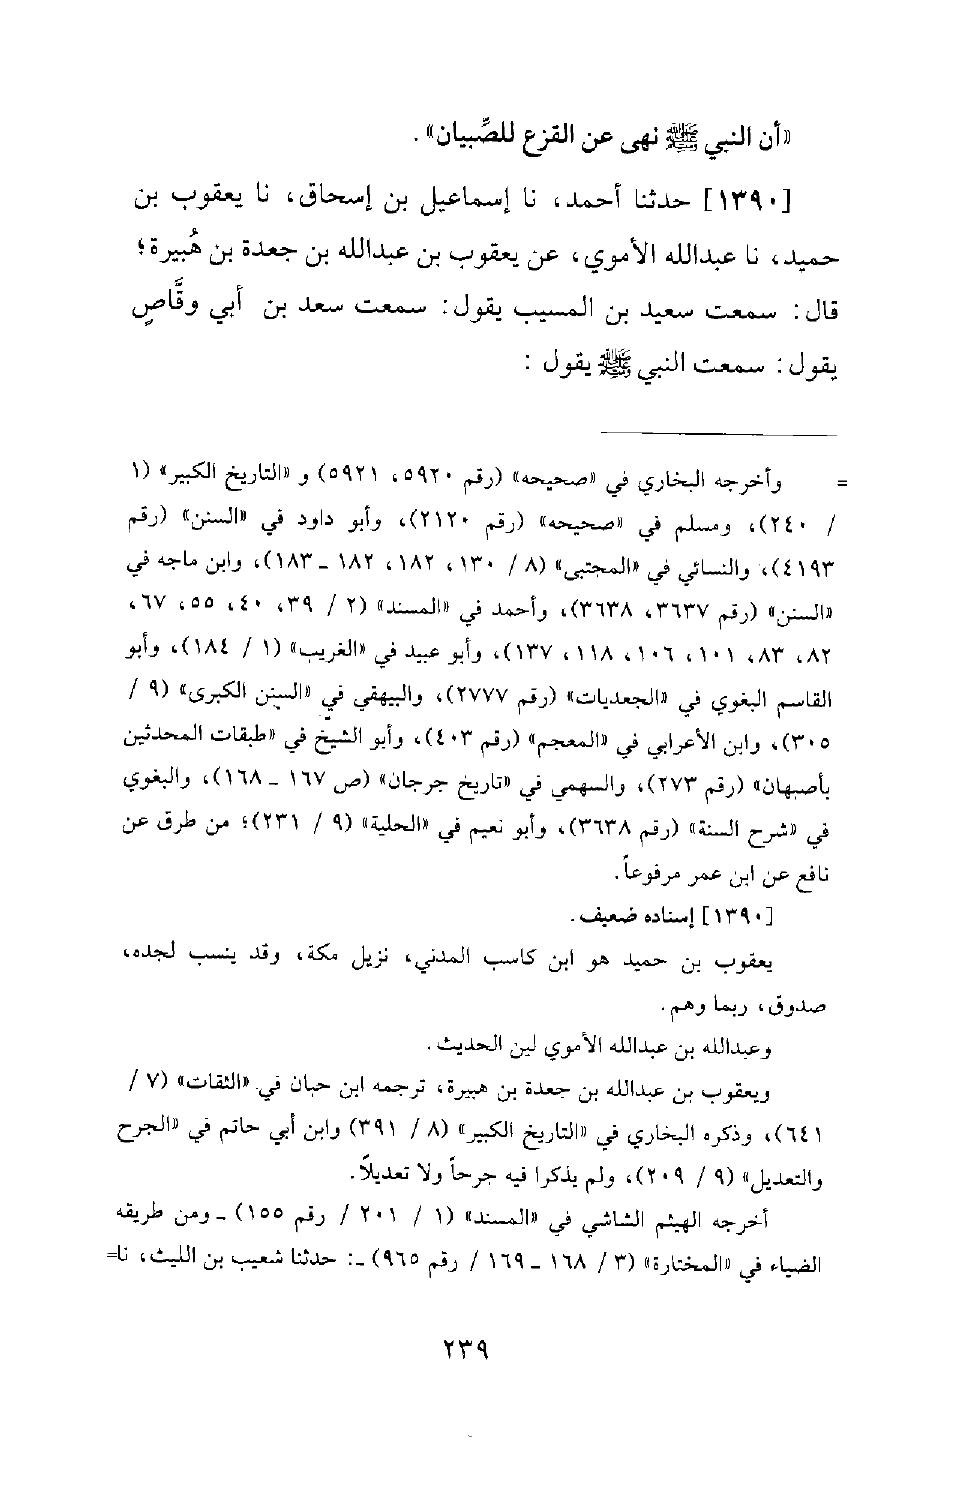 «أن النبي ﷺ نهى عن القزع للصِّبيان» .
[١٣٩٠] حدثنا أحمد، نا إسماعيل بن إسحاق، نا يعقوب بن
حميد، نا عبدالله الأموي، عن يعقوب بن عبدالله بن جعدة بن هُبيرة؛
قال: سمعت سعيد بن المسيب يقول: سمعت سعد بن أبي وقَّاصٍ
يقول: سمعت النبي ﷺ يقول :
= وأخرجه البخاري في «صحيحه» (رقم ٥٩٢٠، ٥٩٢١) و «التاريخ الكبير» (١
/ ٢٤٠)، ومسلم في «صحيحه» (رقم ٢١٢٠)، وأبو داود في «السنن» (رقم
٤١٩٣)، والنسائي في «المجتبى» (٨ / ١٣٠، ١٨٢، ١٨٢ ـ ١٨٣)، وابن ماجه في
«السنن» (رقم ٣٦٣٧، ٣٦٣٨)، وأحمد في «المسند» (٢ / ٣٩، ٤٠، ٥٥، ٦٧،
٨٢، ٨٣، ١٠١، ١٠٦، ١١٨، ١٣٧)، وأبو عبيد في «الغريب» (١ / ١٨٤)، وأبو
القاسم البغوي في «الجعديات» (رقم ٢٧٧٧)، والبيهقي في «السنن الكبرى» (٩ /
٣٠٥)، وابن الأعرابي في «المعجم» (رقم ٤٠٣)، وأبو الشيخ في «طبقات المحدثين
بأصبهان» (رقم ٢٧٣)، والسهمي في «تاريخ جرجان» (ص ١٦٧ ـ ١٦٨)، والبغوي
في «شرح السنة» (رقم ٣٦٣٨)، وأبو نعيم في «الحلية» (٩ / ٢٣١)؛ من طرق عن
نافع عن ابن عمر مرفوعاً.
[١٣٩٠] إسناده ضعيف.
يعقوب بن حميد هو ابن كاسب المدني، نزيل مكة، وقد ينسب لجده،
صدوق، ربما وهم.
وعبدالله بن عبدالله الأموي لين الحديث.
ويعقوب بن عبدالله بن جعدة بن هبيرة، ترجمه ابن حبان في «الثقات» (٧ /
٦٤١)، وذكره البخاري في «التاريخ الكبير» (٨ / ٣٩١) وابن أبي حاتم في «الجرح
والتعديل» (٩ / ٢٠٩)، ولم يذكرا فيه جرحاً ولا تعديلاً.
أخرجه الهيثم الشاشي في «المسند» (١ / ٢٠١ / رقم ١٥٥) ـ ومن طريقه
الضياء في «المختارة» (٣ / ١٦٨ ـ ١٦٩ / رقم ٩٦٥) ـ: حدثنا شعيب بن الليث، نا=
٢٣٩